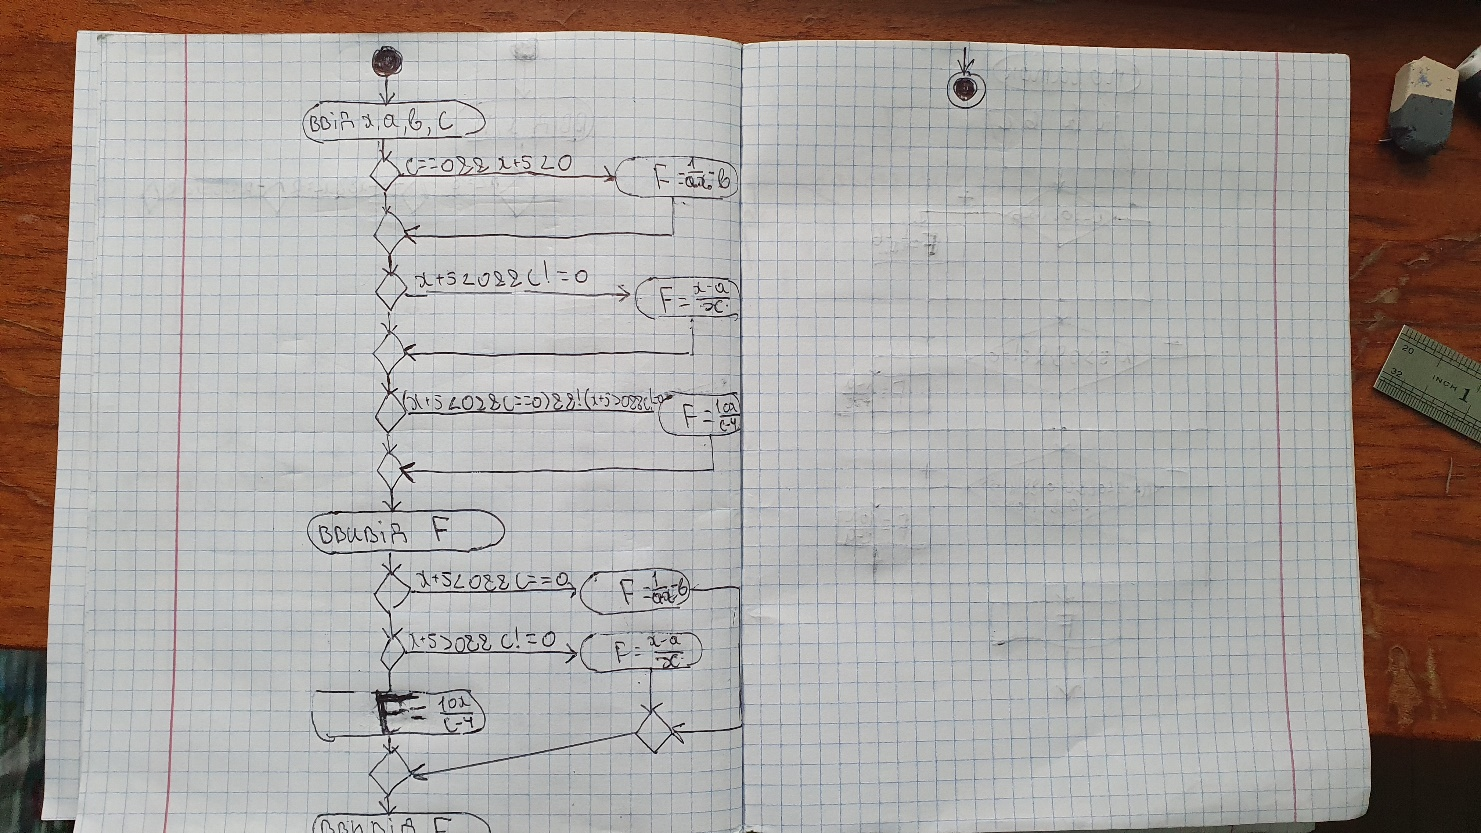 ввід x, a, b, c
c==0&&x+5<0
F=1/ax-b
x+5<0&&c!=0
F=x-a/x
(x+5<0&&c==0)&&!(x+5>0&&c!=0
F=10x/c-4
ввивід F
x+5<0&&c==0
F=1/ax-b
x+5>0&&c!=0
F=x-a/x
F=10x/c-4
ввивід F
20
32
INCH 1